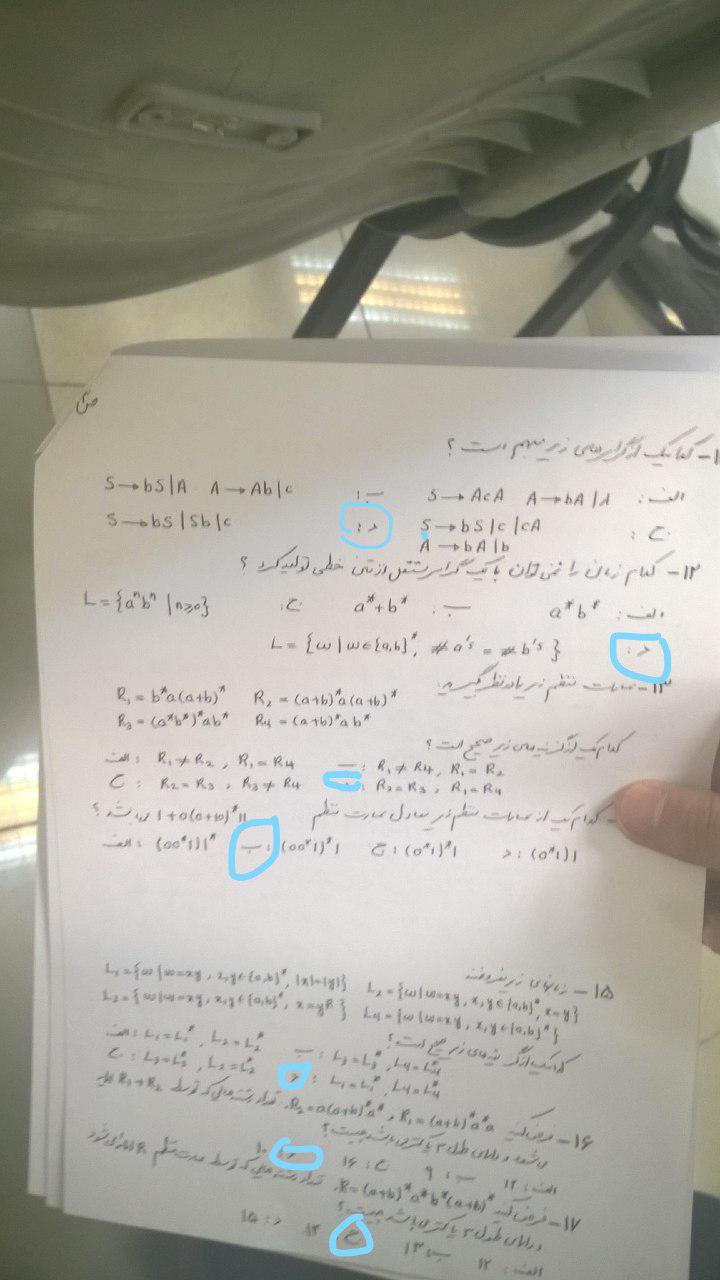 ۱- کدامیک از گرامرهای زیر مبهم است؟
الف: S→AcA A→bA|λ ب: S→bS|A A→Ab|c
ج: S→bS|c|cA د: S→bS|Sb|c
A→bA|b
۱۲- کدام زبان را نمی توان با یک گرامر مستقل از متن خطی تولید کرد؟
الف: a*b* ب: a*+b* ج: L={aⁿbⁿ | n≥0}
د: L={ω|ω∈{a,b}*, #a's = #b's}
۱۳- عبارات منظم زیر را در نظر بگیرید:
R₁=b*a(a+b)* R₂=(a+b)*a(a+b)*
R₃=(a*b*)*ab* R₄=(a+b)*ab*
کدامیک از گزینه های زیر صحیح است؟
الف: R₁≠R₂, R₁=R₄ ب: R₁≠R₄, R₁=R₂
ج: R₂=R₃, R₃≠R₄ د: R₂=R₃, R₁=R₄
کدام یک از عبارات منظم زیر معادل عبارت منظم 1+0(0+10)*11 می باشد؟
الف: (00*1)1* ب: (00*1)*1 ج: (0*1)*1 د: (0*1)1
۱۵- زبانهای زیر مفروضند
L₁={ω|ω=xy, x,y∈{a,b}*, |x|=|y|} L₂={ω|ω=xy, x,y∈{a,b}*, x=y}
L₃={ω|ω=xy, x,y∈{a,b}*, x=yᴿ} L₄={ω|ω=xy, x,y∈{a,b}*}
کدامیک از گزینه های زیر صحیح است؟
الف: L₁=L₁*, L₂=L₂* ب: L₃=L₃*, L₄=L₄*
ج: L₃=L₃*, L₂=L₂* د: L₁=L₁*, L₄=L₄*
۱۶- فرض کنید R₁=(a+b)*a*a, R₂=a(a+b)*a*. تعداد رشته هایی که توسط R₁+R₂ تولید
می شود و دارای طول ۳ یا کمتر می باشد چیست؟
الف: ۱۲ ب: ۹ ج: ۱۶ ۱۰
۱۷- فرض کنید R=(a+b)*a*b*(a+b)*. تعداد رشته هایی که توسط عبارت منظم R می شود
و دارای طول ۳ یا کمتر باشد چیست؟
الف: ۱۲ ب: ۱۳ ج: ۱۴ د: ۱۵